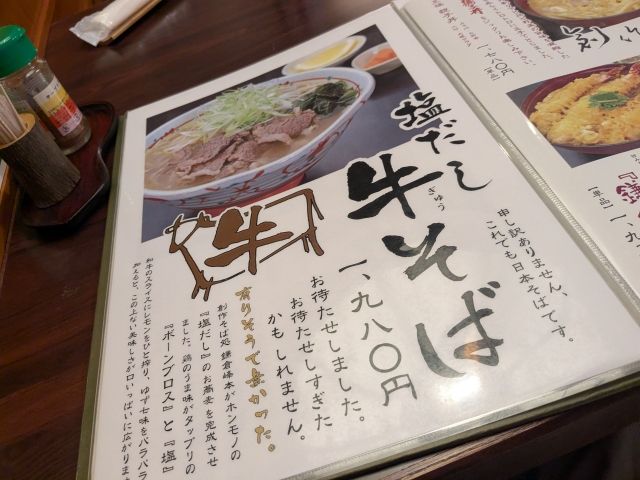 塩だし
牛そば
ぎゅう
申し訳ありません、
これでも日本そばです。
一、九八〇円
お待たせしました。
お待たせしすぎた
かもしれません。
牛
有りそうで無かった。
創作そば処 鎌倉峰本がホンモノの
『塩だし』のお蕎麦を完成させ
ました。鶏のうま味がタップリの
『ボーンブロス』と『塩』
和牛のスライスにレモンをひと搾り、ゆず七味をパラパラ
加えると、この上ない美味しさが口いっぱいに広がりま
一、一八〇円